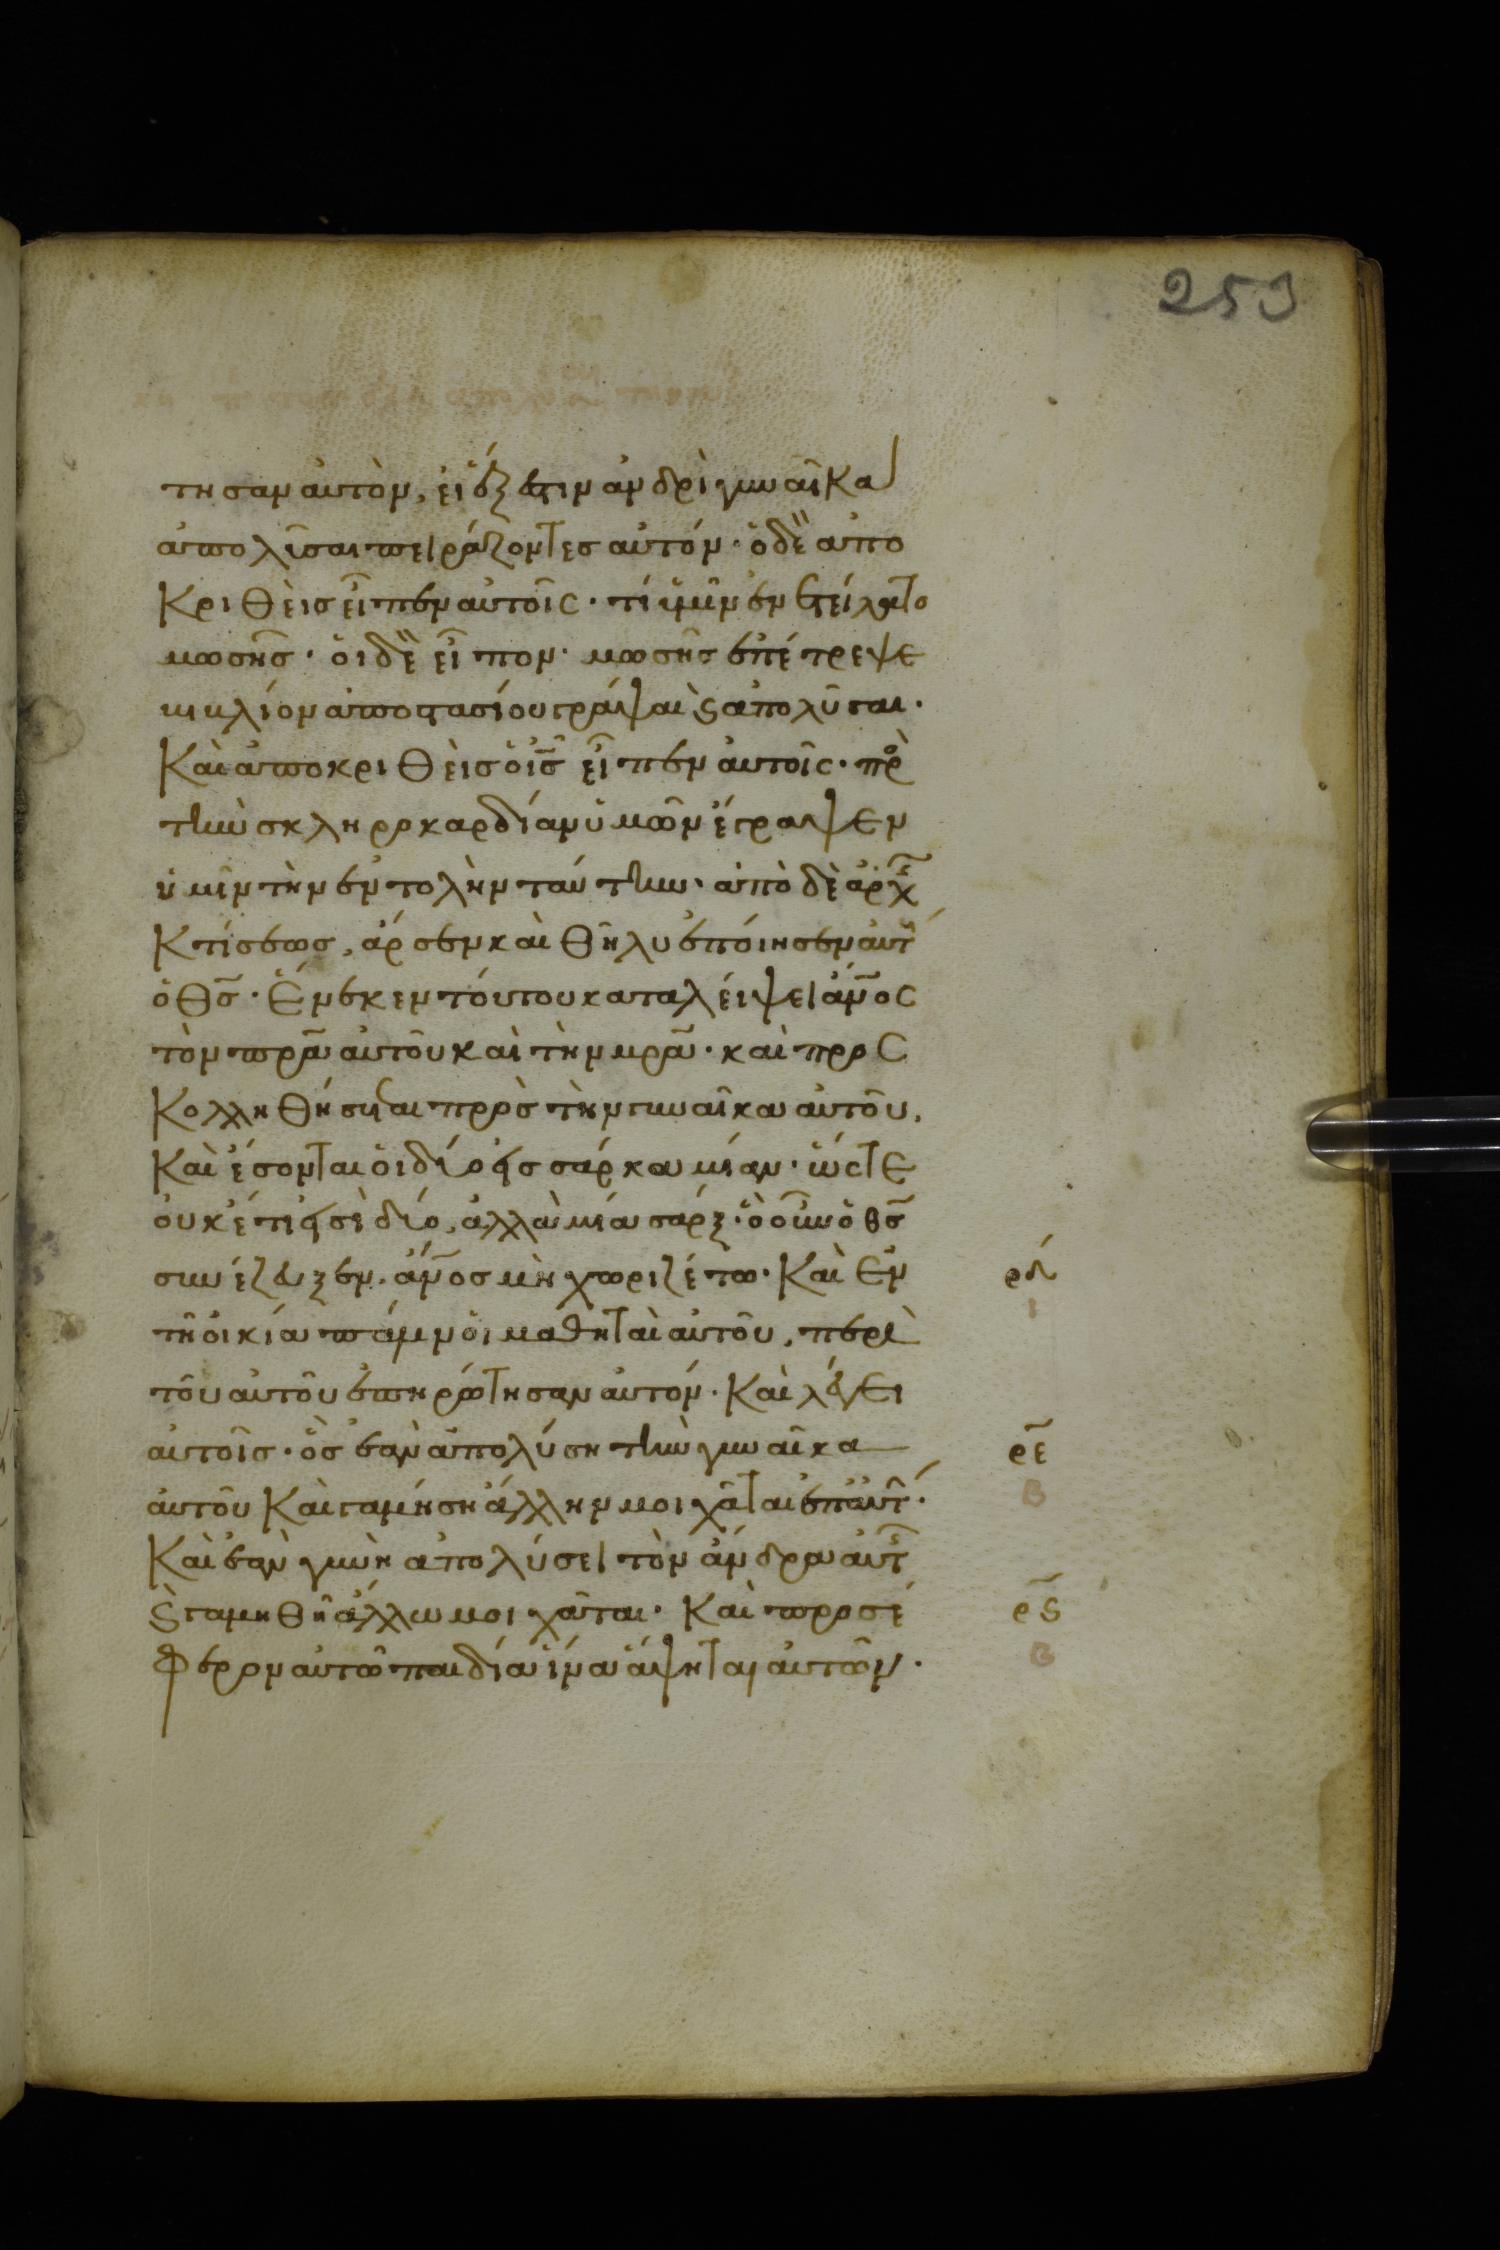 253
τησαν αὐτὸν, εἰ ἔξεστιν ἀνδρὶ γυναῖκα
ἀπολῦσαι πειράζοντες αὐτόν· ὁ δὲ ἀπο
κριθεὶς εἶπεν αὐτοῖς· τί ὑμῖν ἐνετείλατο
μωσῆς· οἱ δὲ εἶπον· μωσῆς ἐπέτρεψε
βιβλίον ἀποστασίου γράψαι ϗ ἀπολῦσαι·
Καὶ ἀποκριθεὶς ὁ ις εἶπεν αὐτοῖς· πρὸ
τὴν σκληροκαρδίαν ὑμῶν ἔγραψεν
ὑμῖν τὴν ἐντολὴν ταύτην· ἀπὸ δὲ ἀρχῆ
Κτίσεως, ἄρσεν καὶ θῆλυ ἐποίησεν αὐτ
ὁ θς· Ἕνεκεν τούτου καταλείψει ἄνος
τὸν πρα αὐτοῦ καὶ τὴν μρα· καὶ προς
Κολληθήσεται πρὸς τὴν γυναῖκα αὐτοῦ,
Καὶ ἔσονται οἱ δύο εἰς σάρκα μίαν· ὥστε
οὐκέτι εἰσὶ δύο, ἀλλὰ μία σάρξ· ὃ οὖν ὁ θς
συνέζευξεν, ἄνος μὴ χωριζέτω· Καὶ ἐν ρδ
ι
τῇ οἰκία πάλιν οἱ μαθηταὶ αὐτοῦ, περὶ
τοῦ αὐτοῦ ἐπηρώτησαν αὐτόν· Καὶ λέγει
αὐτοῖς· ὃς ἐὰν ἀπολύση τὴν γυναῖκα ρε
αὐτοῦ Καὶ γαμήση ἄλλην μοιχᾶται ἐπ' αὐτ· β
Καὶ ἐὰν γυνὴ ἀπολύσει τὸν ἄνδρα αὐτ
ϗ γαμηθῆ ἄλλω μοιχᾶται· Καὶ προσέ ρϛ
φερον αὐτῶ παιδία ἵνα ἅψηται αὐτῶν· β